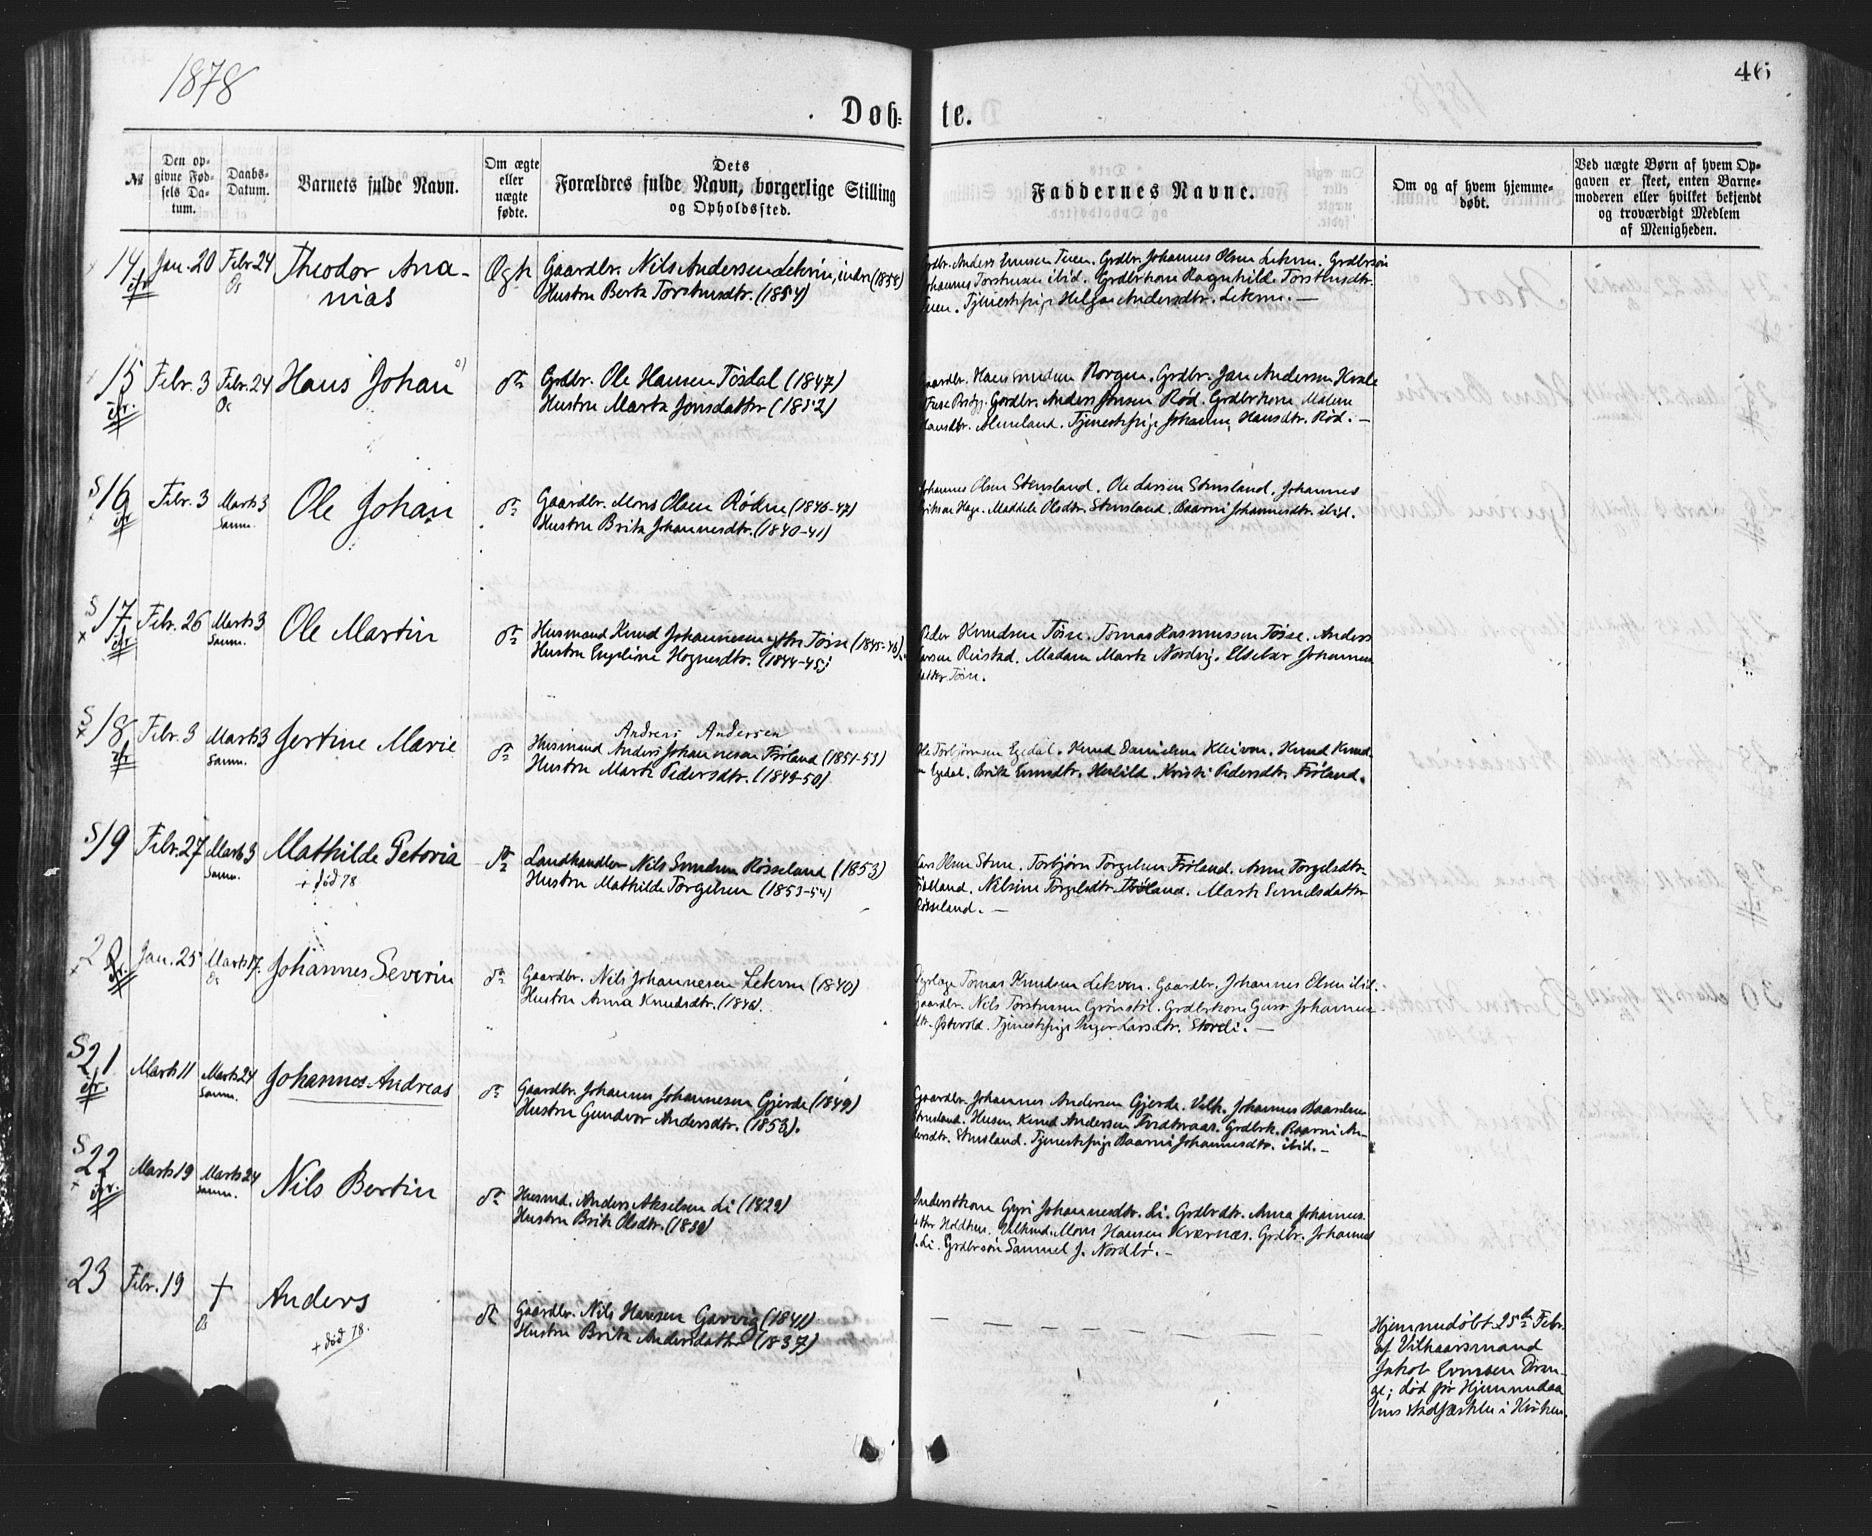 1878
46
Døb= te.
№
Den op-
givne Fød-
sels Da-
tum.
Daabs-
Datum.
Barnets fulde Navn.
Om ægte
eller
uægte
fødte.
Dets
Forældres fulde Navn, borgerlige Stilling
og Opholdssted.
Faddernes Navne.
Om og af hvem hjemme-
døbt.
Ved uægte Børn af hvem Op-
gaven er skeet, enten Barne-
moderen eller hvilket bekjendt
og troværdigt Medlem
af Menigheden.
14 Jan. 20 Febr. 24 Os Theodor Ana-
nias
Ægte
Gaardbr. Nils Andersen Lekven, indre (1854)
Hustru Berta Torstensdtr. (1854)
Grdbr. Anders Ennsen Teien. Grdbr. Johannes Olsen Lekven. Grdbrsøn
Johannes Torstensen ibid. Grdbrkone Ragnhild Torstensdtr.
Teien. Tjenestepige Helga Andersdtr. Lekven. —
15 Febr. 3 Febr. 24 Os Hans Johan
Grdbr. Ole Hansen Tøsdal (1847)
Hustru Marta Jonsdatter (1852)
Gaardbr. Hans Knudsen Borgen. Grdbr. Jan Andersen Kvale
Fuse Prstgj. Gardbr. Anders Jonsen Rød. Grdbrkone Malene
Hansdtr. Alneland. Tjenestepige Johanna Hansdtr. Rød. —
16 Febr. 3 Marts 3 Samn. Ole Johan
Gaardbr. Mons Olsen Røden (1846-47)
Hustru Brita Johannesdtr. (1840-41)
Johannes Olsen Stensland. Ole Larsen Stensland. Johannes
Eriksen Hage. Maddele Olsdtr. Stensland. Baarni Johannesdtr. ibid.
17 Febr. 26 Marts 3 Samn. Ole Martin
Husmand Knud Johannesen ytre Tøsse (1845-46).
Hustru Engeline Hognesdtr. (1844-45)
Peder Knudsen Tøsse. Tomas Rasmussen Tøsse. Anders
Larsen Reistad. Madam Marta Nordvig. Elsebær Johannes
datter Tøsse.
18 Febr. 3 Marts 3 Samn. Gertine Marie
Andreas Andersen
Husmand Anders Johannesen Frøland (1851-53)
Hustru Marta Pedersdtr. (1849-50)
Ole Torbjørnsen Egedal. Knud Danielsen Kleiven. Knud Knud-
sen Egedal. Brita Enundtr. Heilild. Kristi Pedersdtr. Frøland.
19 Febr. 27 Marts 3 Samn. Mathilde Petovia
+ død 78
Landhandler Nils Svendsen Røsseland (1853)
Hustru Mathilde Torgilsen (1853-54)
Lars Olsen Stene. Torbjørn Torgelsen Frøland. Anne Torgelsdtr.
Frøland. Nilsine Torgelsdtr. Frøland. Marta Semelsdatter
Røsseland. —
20 Jan. 25 Marts 17. Os Johannes Severin
Gaardbr. Nils Johannesen Lekven (1840)
Hustru Anna Knudsdtr. (1846).
Tomas Knudsen Lekven. Gaardbr. Johannes Olsen ibid.
Gaardbr. Nils Torstensen Grønstøl. Grdbrkone Guro Johannes-
dtr. Østervold. Tjenestepige Inger Larsdtr. Storeli. —
21 Marts 11 Marts 24 Samn. Johannes Andreas
Gaardbr. Johannes Johannesen Gjerde (1849)
Hustru Gundvor Andersdtr. (1853).
Gaardbr. Johannes Andersen Gjerde. Vilk. Johannes Baardsen
Stensland. Husm. Knud Andersen Tveiteraas. Grdbrk. Baarni An-
dersdtr. Stensland. Tjenestepige Baarni Johannesdtr. ibid. —
22 Marts 19 Marts 24 Samn. Nils Bertin
Husmd. Anders Akselsen Li (1829)
Hustru Brita Olsdtr. (1830)
Anderskone Gyri Johannesdtr. Li. Grdbrdtr. Anna Johannes-
datter Holdhus. Mons Hansen Kværnæs. Grdbr. Johannes
J. Li. Grdbrsøn Samuel J. Nordbø. —
23 Febr. 19 † Os Anders
+ død 78.
Gaardbr. Nils Hansen Gjævvig (1841)
Hustru Brita Andersdatter (1837)
Hjemmedøbt 25de Febr.
af Vilkaarsmand
Jakob Ennsen Dran-
ge; død før Hjemmedaa
bens stadfæstelse i Kirken.